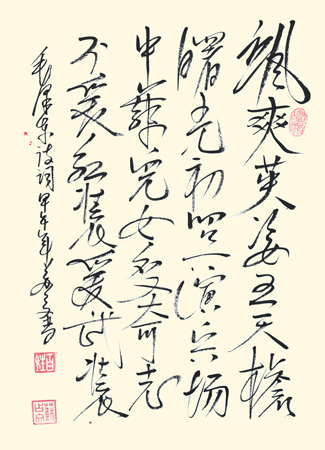 颯爽英姿五尺槍
曙光初照演兵场
中華兒女多奇志
不爱红装爱武装
毛泽东诗词甲午年书